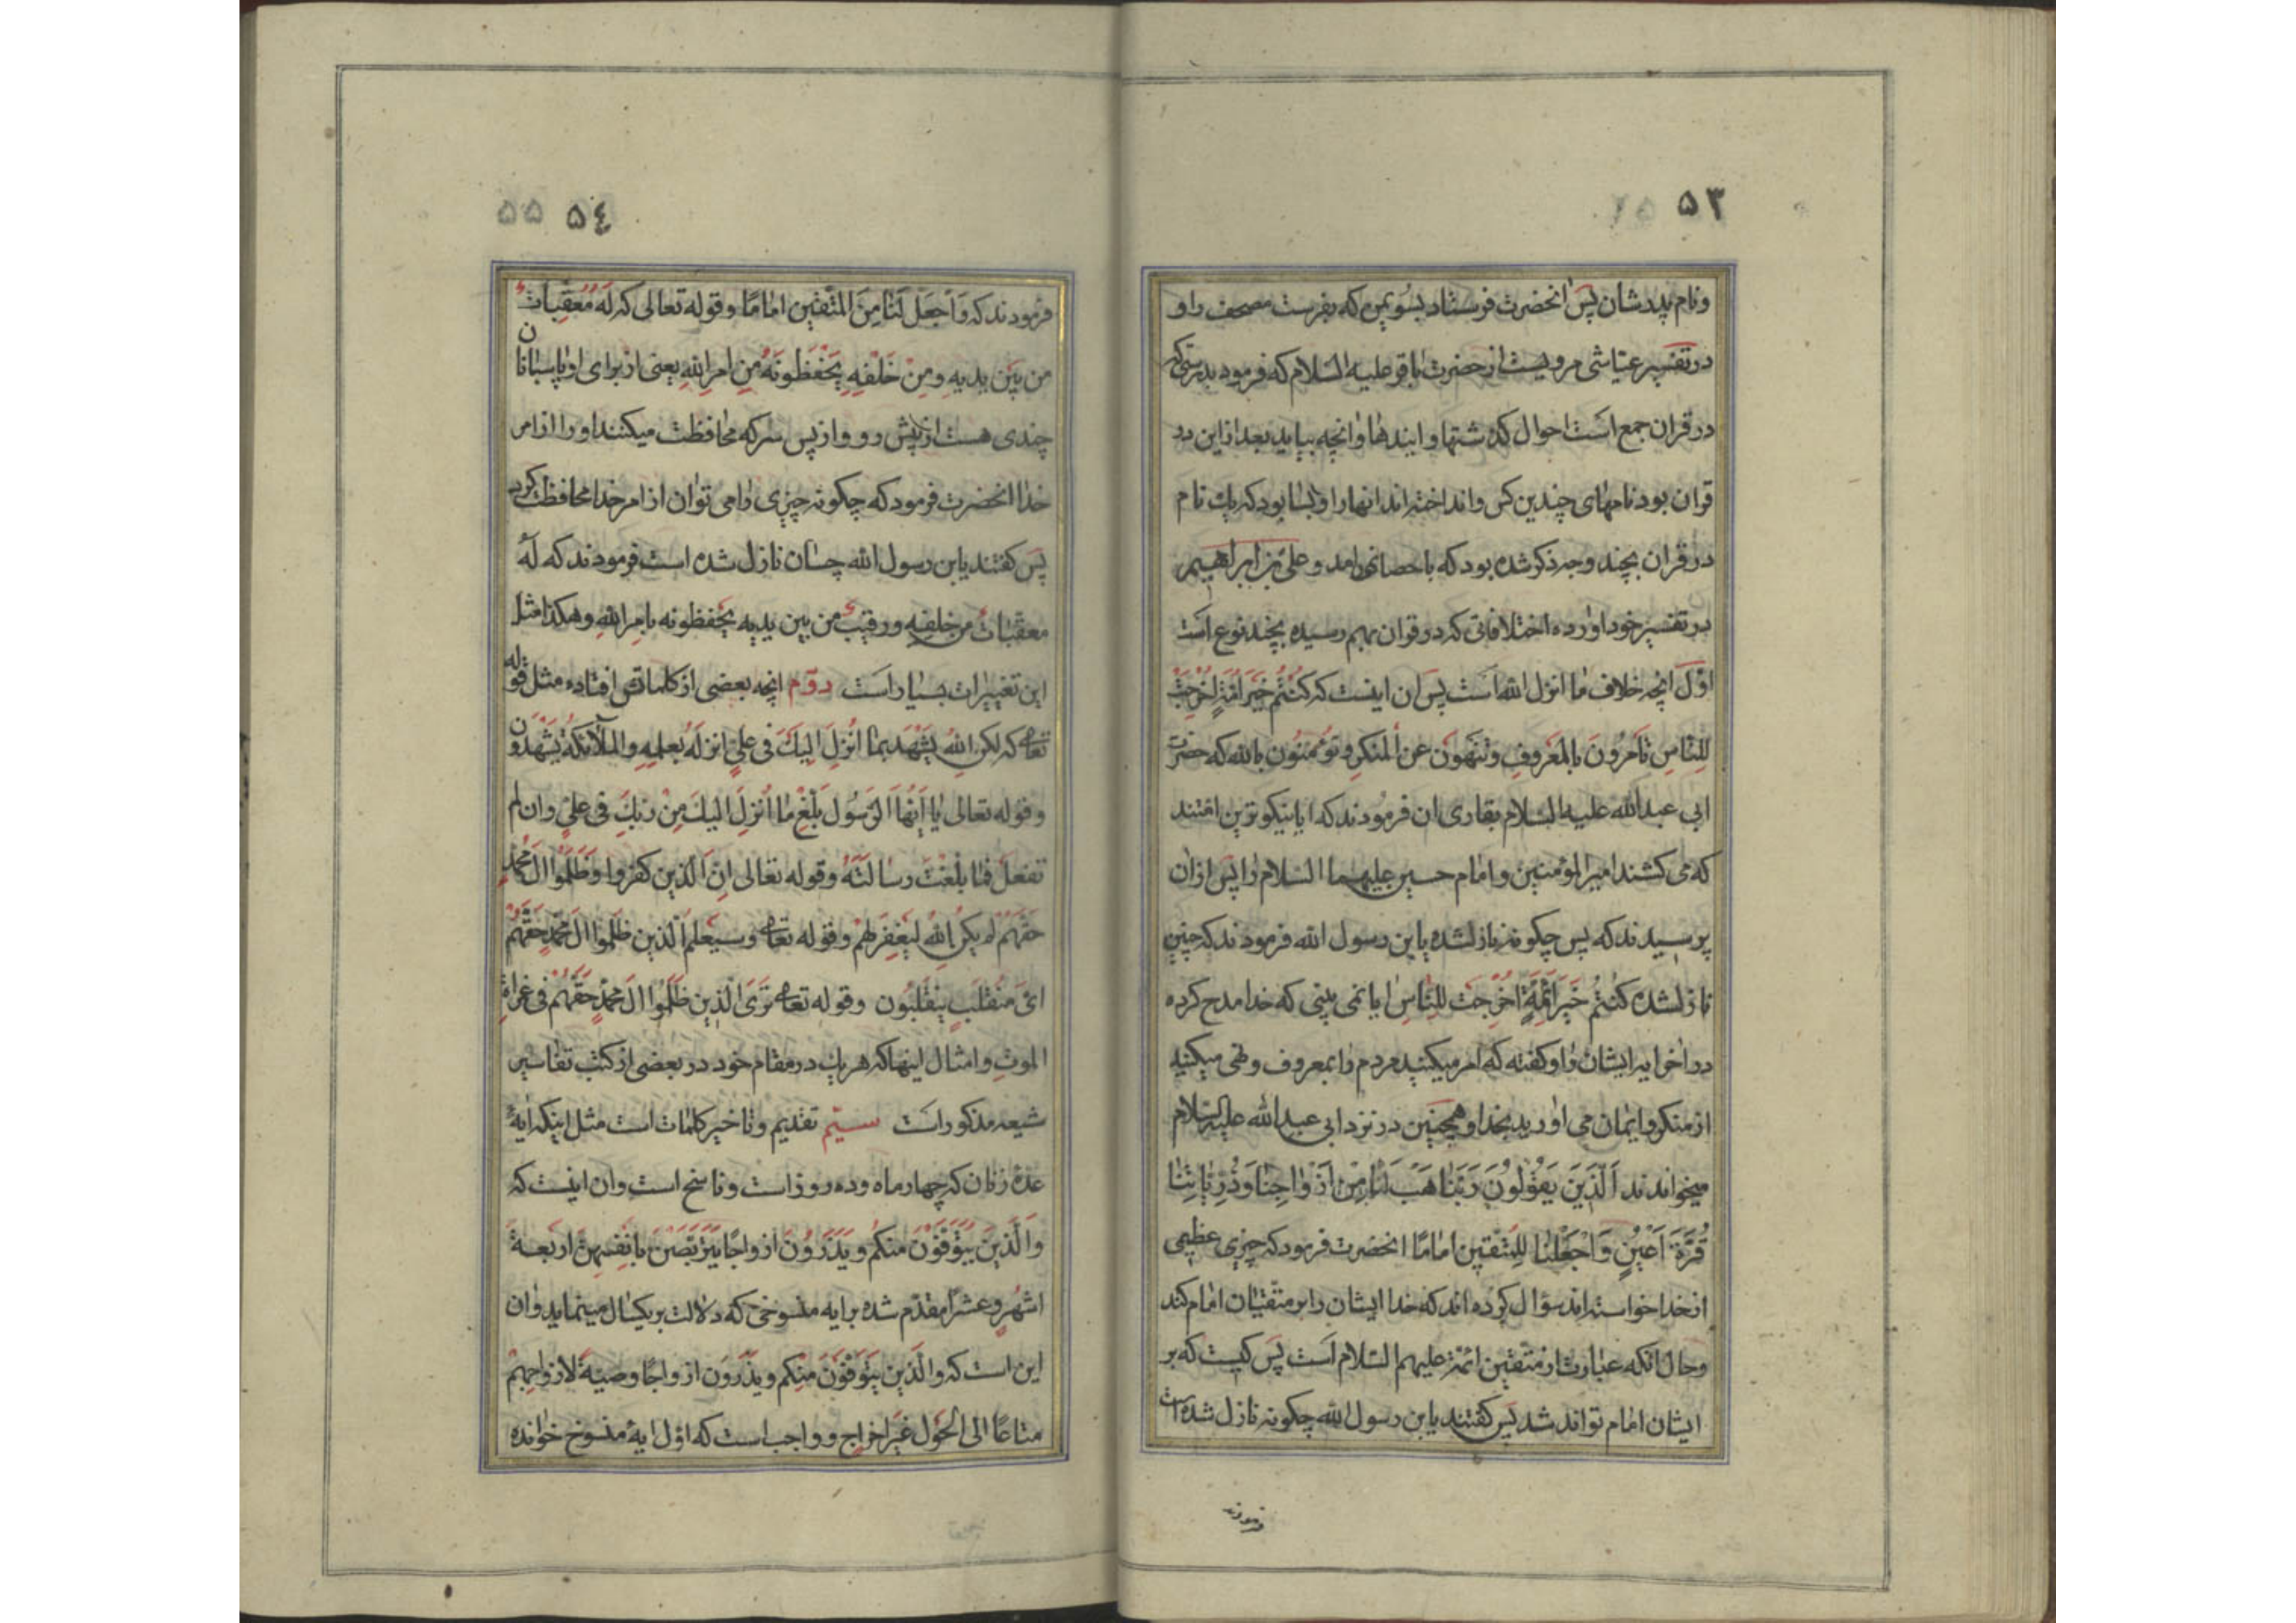 ۵۳
ونام پدرشان پس انحضرت فرستاد بسوی من که بفرست مصحف را و
در تفسیر عیاشی مرویست از حضرت باقر علیه السلام که فرمود بدرستیکه
در قران جمع است احوال کذشتها و ایندها و انچه بیاید بعد از این در
قران بود نامهای چندین کس و انداخته اند انها را و بسا بود که یك نام
در قران بچند وجه ذکر شده بود که باحصا نمی امد و علی بن ابراهیم
در تفسیر خود اورده اختلافاتی که در قران بهم رسیده بچند نوع است
اوّل انچه خلاف ما انزل الله است پس ان اینست که کُنْتُم خَیْرَ اُمَّةٍ اُخْرِجَتْ
لِلنّاسِ تَأمُرُونَ بِالمَعْرُوفِ وتَنْهَونَ عن المُنکَرِ وتُؤمنُونَ بالله که حضرت
ابی عبدالله علیه السلام بقاری ان فرمودند که ایا نیکوترین امّتند
که می کشند امیرالمؤمنین و امام حسین علیهما السلام را پس ازان
پرسیدند که پس چکونه نازلشده یابن رسول الله فرمودند که چنین
نازلشده کنتُم خَیرَ ائمّةٍ اُخْرِجَت لِلنّاسِ ایا نمی بینی که خدا مدح کرده
در اخر ایه ایشان را و کفته که امر میکنید مردم را بمعروف و نهی میکنید
از منکر و ایمان می اورید بخدا و همچنین در نزد ابی عبدالله علیه السلام
میخواندند اَلَّذینَ یَقُولُونَ رَبَّنا هَبْ لَنا مِنْ اَزْواجِنا وَذُرِّیاتِنا
قُرَّةَ اَعْیُنٍ وَاجْعَلْنا لِلمُتَّقین اماماً انحضرت فرمود که چیزی عظیمی
از خدا خواسته اند سؤال کرده اند که خدا ایشان را بر متقیان امام کند
وحال انکه عبارت از متقین ائمه علیهم السلام است پس کیست که بر
ایشان امام تواند شد پس کفتند یابن رسول الله چکونه نازل شده است
فرمودند
۵٤ ۵۵
فرمودند که وَاجعَل لَنا مِنَ المُتَّقین اماماً وقوله تعالی که لَهُ مُعَقِّباتٌ
من بَین یدیهِ ومِنْ خَلْفِهِ یَحْفَظُونَهُ مِن امرِ اللهِ یعنی از برای او پاسبانان
چندی هست از پیش رو و از پس سر که محافظت میکنند او را از امر
خدا انحضرت فرمود که چکونه چیزی را می توان از امر خدا محافظت کرد
پس کفتند یابن رسول الله چسان نازل شده است فرمودند که لَهُ
معقبات من خلفِهِ ورقیبٌ من بین یدیه یحفظونه بامرِ اللهِ وهکذا مثل
این تغییرات بسیار است دوّم انچه بعضی از کلماتش افتاده مثل قوله
تعالی که لکنِ اللهُ یشْهَد بما اُنْزِلَ اِلیكَ فی علیٍّ انزلَهُ بعلمِهِ والملآئکةُ یَشْهَدُونَ
وقوله تعالی یا اَیُّهَا الرَّسُول بَلِّغْ ما اُنزِلَ الیكَ مِنْ رَبِّكَ فی علیٍّ وان لم
تفعَلْ فما بلّغْتَ رسالَتَهُ وقوله تعالی انّ الّذین کفروا وظَلَمُوا الَ محمّدٍ
حَقَّهُم لم یکنِ اللهُ لِیغْفِرَ لهُم وقوله تعالی وسیعلمُ الّذین ظلموا الَ محمّدٍ حَقَّهُم
ایَّ منقَلَبٍ ینقَلِبُون وقوله تعالی تَرَی الّذین ظلموا الَ محمّدٍ حقّهُم فی غمراتِ
الموتِ و امثال اینها که هر یك در مقام خود در بعضی از کتب تفاسیر
شیعه مذکور است سیّم تقدیم و تاخیر کلمات است مثل اینکه ایهٔ
عدهٔ زنان که چهار ماه و ده روز است وناسخ است وان اینست که
وَالَّذینَ یُتَوَفَّوْنَ منکُم ویَذَرُونَ ازواجاً یَتَرَبَّصْنَ بانفُسِهِنَّ اربَعةَ
اشهُرٍ وعشراً مقدّم شده بر ایه منسوخی که دلالت بر یکسال مینماید وان
این است که والَّذین یُتَوَفَّوْنَ منکم ویذَرُونَ ازواجاً وصیّةً لازواجِهِمْ
متاعاً الی الحَوْل غیرَ اخراج و واجب است که اوّل ایهٔ منسوخ خوانده